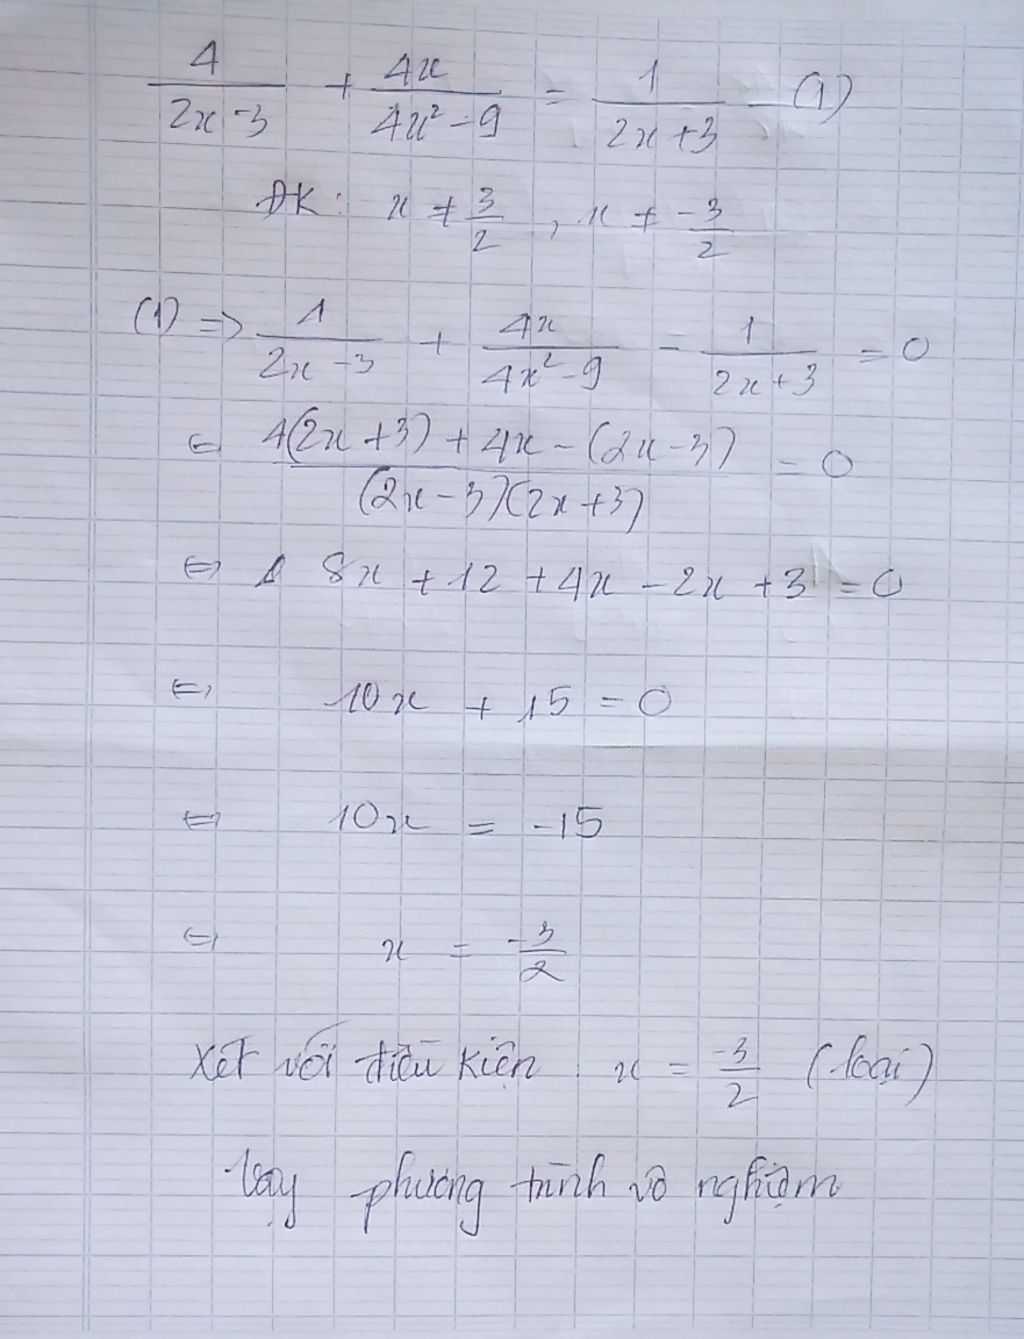 4/(2x-3) + 4x/(4x²-9) = 1/(2x+3) (1)
ĐK: x ≠ 3/2, x ≠ -3/2
(1) => 1/(2x-3) + 4x/(4x²-9) - 1/(2x+3) = 0
<=> (4(2x+3) + 4x - (2x-3))/((2x-3)(2x+3)) = 0
<=> 8x + 12 + 4x - 2x + 3 = 0
<=> 10x + 15 = 0
<=> 10x = -15
<=> x = -3/2
Xét với điều kiện : x = -3/2 (loại)
Vậy phương trình vô nghiệm